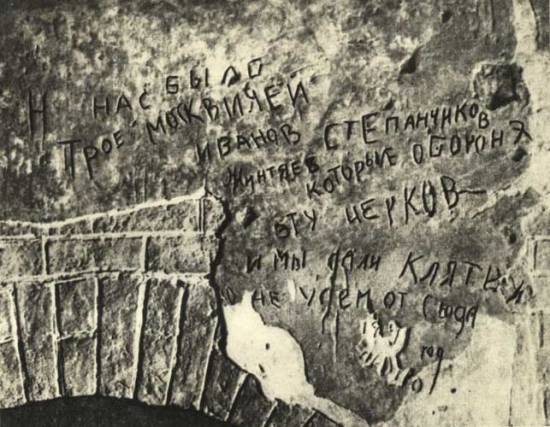 Н НАС БЫЛО
ТРОЕ МОСКВИЧЕЙ
ИВАНОВ СТЕПАНЧИКОВ
ЖУНТЯЕВ КОТОРЫЕ ОБОРОНЯ
ЭТУ ЦЕРКОВ
И МЫ ДАЛИ КЛЯТВУ
НЕ УДЕМ ОТ СЮДА
год